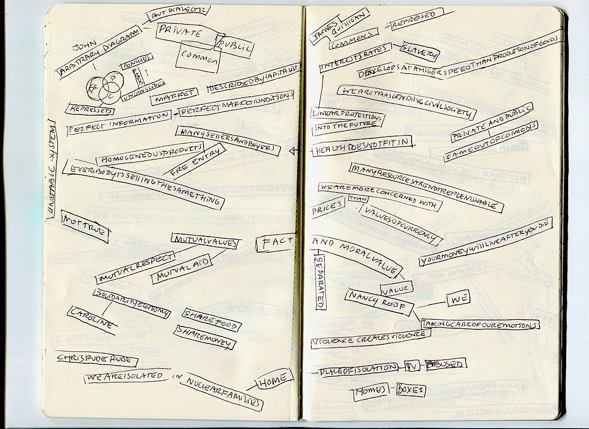 JOHN
ARBITRARY DIAGRAM
PRIVATE
PUBLIC
COMMON
REPRESSED
MARKET
DESCRIBED BY CAPITAL
PERFECT INFORMATION
PERFECT MARKET CONDITIONS
MANY SELLERS AND BUYERS
HOMOGENEOUS PRODUCTS
FREE ENTRY
EVERYBODY IS SELLING THE SAME THING
NOT TRUE
MUTUAL VALUES
FACT
MUTUAL RESPECT
MUTUAL AID
SOLIDARITY ECONOMY
CAROLINE
SHARE FOOD
SHARE MONEY
CHRIS RUDE RUDE
WE ARE ISOLATED IN
NUCLEAR FAMILIES
HOME
JAMES
QUILLIGAN
COMMONS
REPRESSED
INTERESTRATES
SLAVERY
DEVELOPS AT A HIGER SPEED THAN PRODUCTION OF GOODS
WE ARE TRASCENDING CIVIL SOCIETY
LINEAR PROJECTIONS
INTO THE FUTURE
PRIVATE AND PUBLIC
CAME OUT OF COMMONS
HEALTH DOES NOT FIT IN
MANY RESOURCES ARE NOT REPLENISHABLE
WE ARE MORE CONCERNED WITH
PRICES THAN
VALUES OF CURRENCY
YOUR MONEY WILL LIVE AFTER YOU DIE
AND MORAL VALUE
SEPARATED
VALUE
NANCY ROOF
WE
TAKING CARE OF OUR EMOTIONS
VIOLENCE CREATES VIOLENCE
PLACE OF ISOLATION
TV
ABUSED
HOMES
BOXES